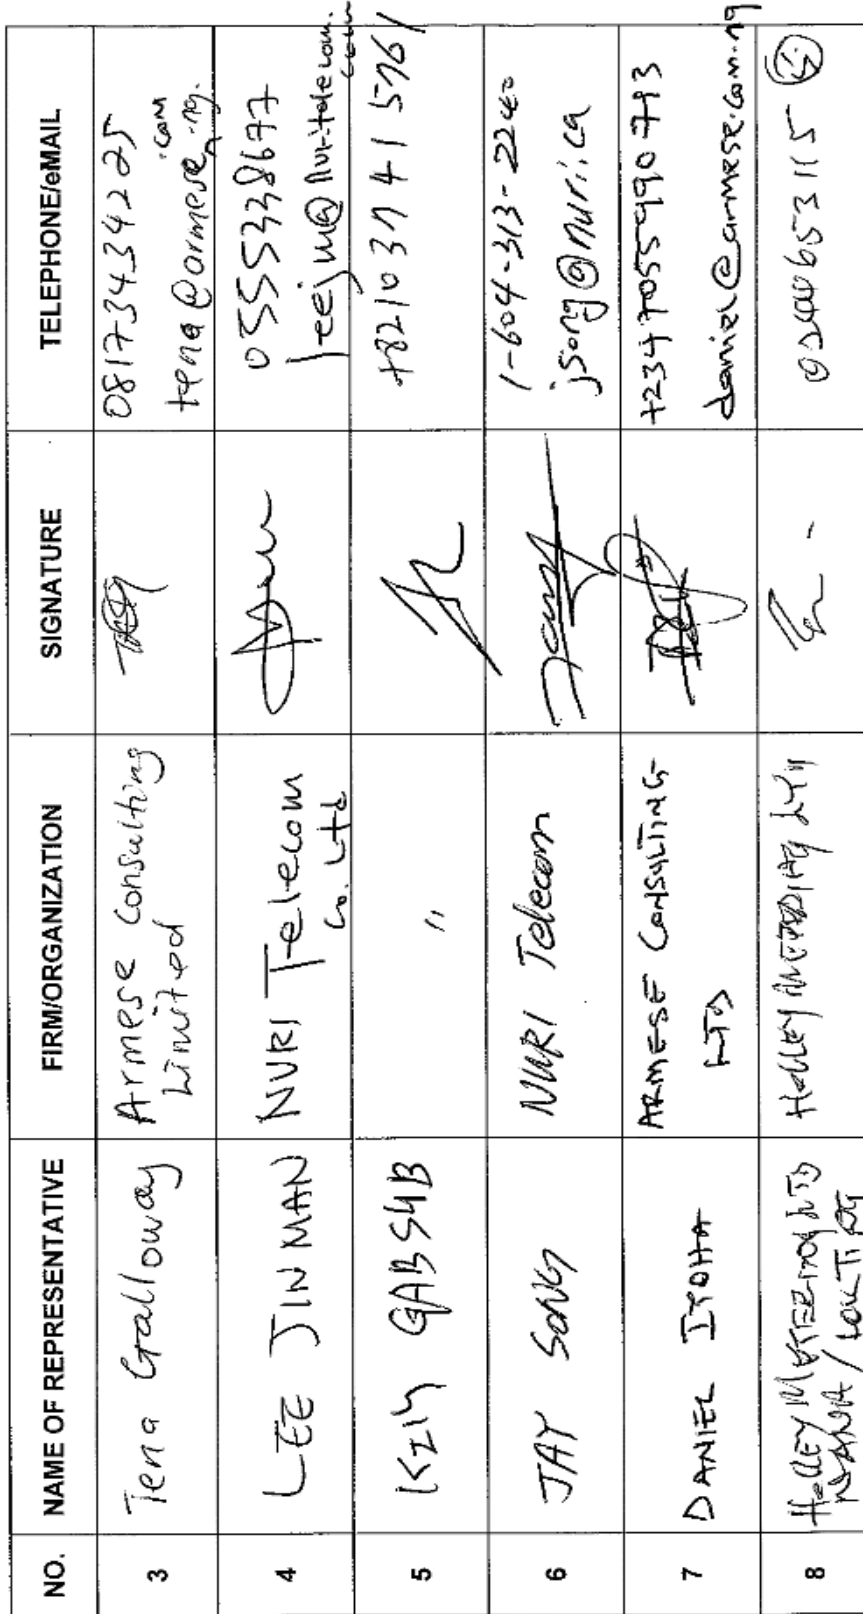 NO. NAME OF REPRESENTATIVE FIRM/ORGANIZATION SIGNATURE TELEPHONE/eMAIL
3 Tena Galloway Armese Consulting Limited 08173434225
tena@armese.com.ng.
4 LEE JIN MAN NURI Telecom Co. Ltd 0555338677
leejm@nuritelecom.com
5 GABSUB " +821037415761
6 JAY SONG NURI Telecom 1-604-313-2240
jsong@nuri.ca
7 DANIEL ARMESE CONSULTING LTD +2347055990793
daniel@armese.com.ng
8 HOLLEY METERING LTD HOLLEY METERING LTD